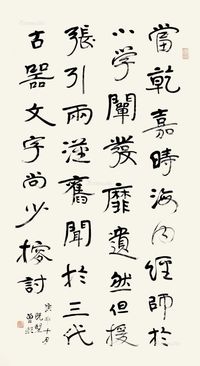 當乾嘉時海内經師於
小学闡發靡遺然但援
張引兩漢舊聞於三代
古器文字尚少討
十月